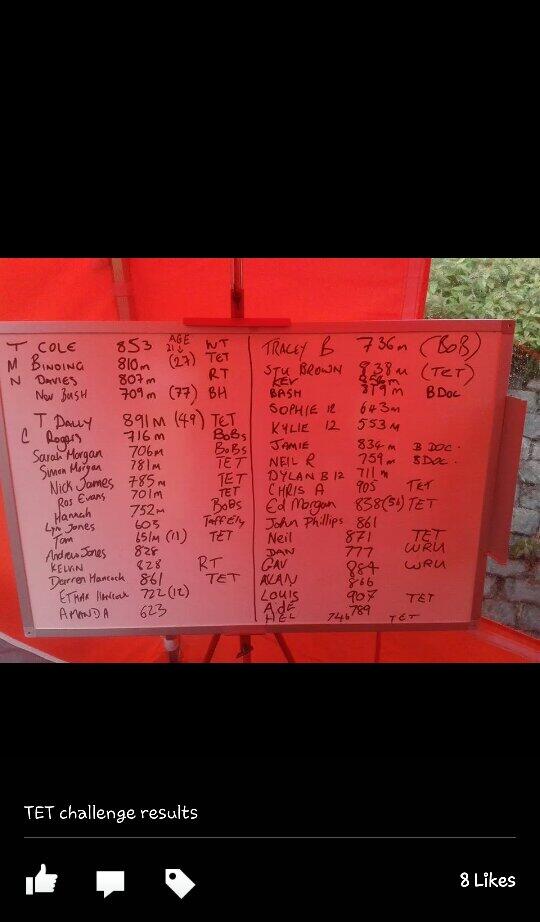 AGE
T COLE 853 21↓ WT
M BINDING 810m (27) TET
N DAVIES 807m RT
Nev BASH 709m (77) BH
T DALLY 891m (49) TET
C Rogers 716m BoBs
Sarah Morgan 706m BoBs
Simon Morgan 781m TET
Nick James 785m TET
Ros Evans 701m TET
Hannah 752m BoBs
Lyn Jones 605 Taff Ely
Tom 651m (11) TET
Andrew Jones 828
KELVIN 828 RT
Darren Hancock 861 TET
ETHAN HANCOCK 722 (12)
AMANDA 623
TRACEY B 736m (BoB)
STU BROWN 838m (TET)
KEV
BASH 819m B Doc
SOPHIE 12 643m
KYLIE 12 553m
JAMIE 834m B DOC.
NEIL R 759m BDOC.
DYLAN B 12 711m
CHRIS A 905 TET
Ed Morgan 838(56) TET
John Phillips 861
Neil 871 TET
DAN 777 WRU
GAV 884 WRU
ALAN 866
LOUIS 907 TET
AdE 789
HEL 746 TET
TET challenge results
8 Likes